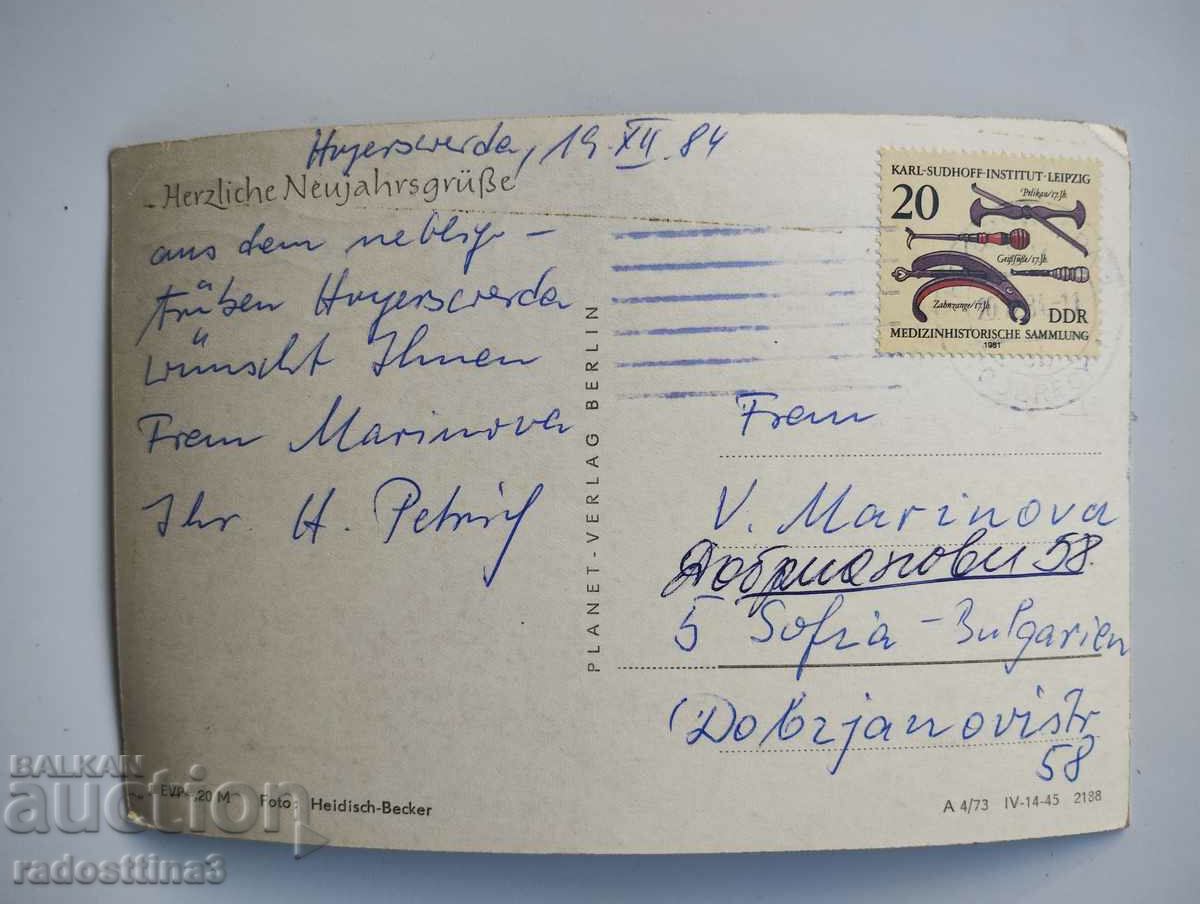 Hoyerswerda, 19. XII. 84
Herzliche Neujahrsgrüße
aus dem neblig-
trüben Hoyerswerda
wünscht Ihnen
Frau Marinova
Ihr H.
PLANET-VERLAG BERLIN
KARL-SUDHOFF-INSTITUT·LEIPZIG
20
Pelikan/17.Jh.
Geißfüße/17.Jh.
Zahnzange/17.Jh.
DDR
MEDIZINHISTORISCHE SAMMLUNG
1981
Frau
V. Marinova
Добрианови 58.
5 Sofia - Bulgarien
(Dobrjanovistr
58
EVP -,20 M Foto: Heidisch-Becker
A 4/73 IV-14-45 2188
BALKAN
auction
radosttina3